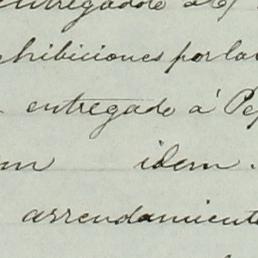 entregadole á
hibiciones por la
entregado á Pe
m idem.
arrendamiento